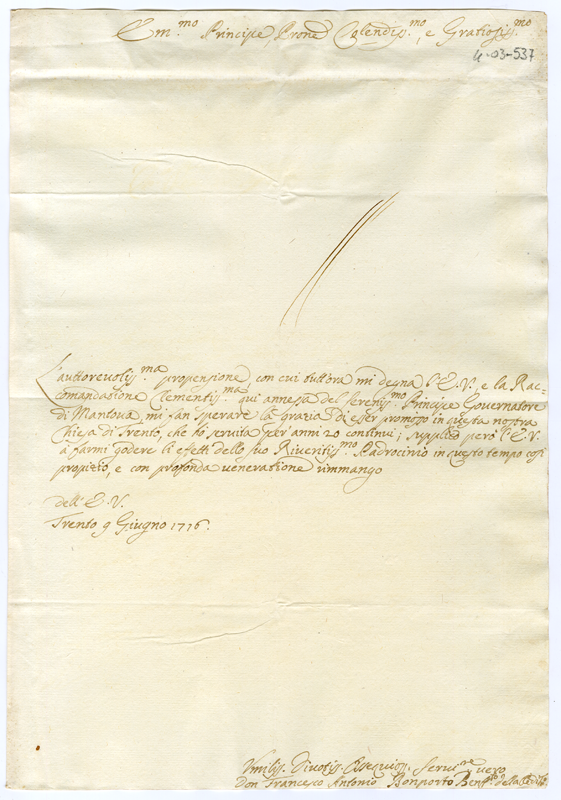 Em.mo Principe, Prone Colendiss.mo, e Gratiosiss.mo
4-03-537
L'auttorevoliss.ma propensione, con cui tutt'ora mi degna l'E.V., e la Rac=
comandazione Clementiss.ma qui annessa del Sereniss.mo Principe Governatore
di Mantova, mi fan sperare la grazia di esser promosso in questa nostra
Chiesa di Trento, che hò servita per anni 20 continui; supplico però l'E.V.
a farmi godere li effetti dello suo Riveritiss.mo Padrocinio in questo tempo così
propizio, e con profonda veneratione rimmango
dell'E.V.
Trento 9 Giugno 1716.
Umiliss. Divotiss. Osequios. Servi.re vero
Don Francesco Antonio Bonporto Benf.to della